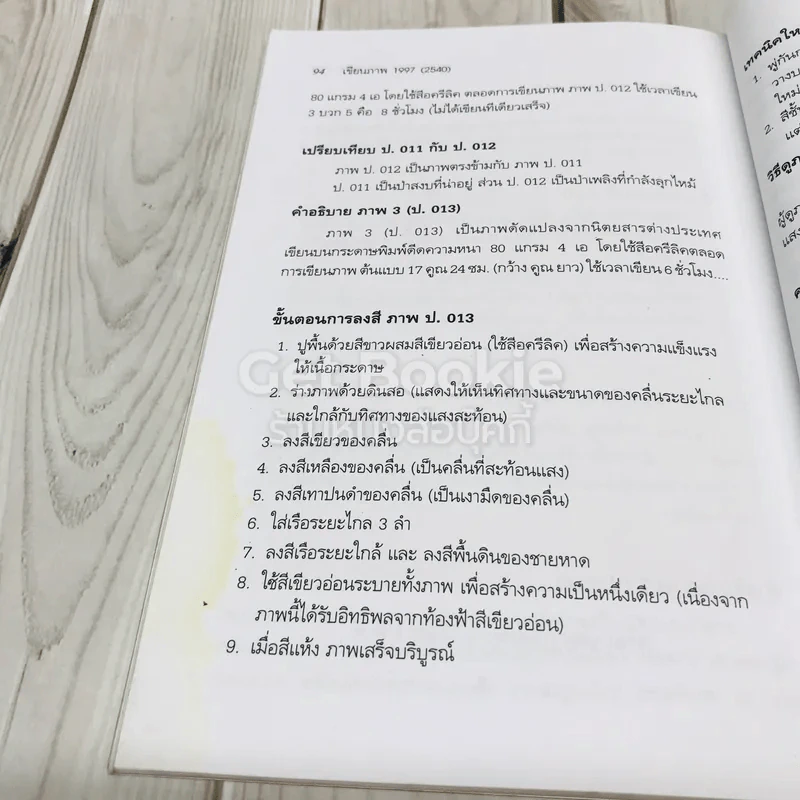 94 เขียนภาพ 1997 (2540)
80 แกรม 4 เอ โดยใช้สีอครีลิค ตลอดการเขียนภาพ ภาพ ป. 012 ใช้เวลาเขียน
3 บวก 5 คือ 8 ชั่วโมง (ไม่ได้เขียนทีเดียวเสร็จ)
เปรียบเทียบ ป. 011 กับ ป. 012
ภาพ ป. 012 เป็นภาพตรงข้ามกับ ภาพ ป. 011
ป. 011 เป็นป่าสงบที่น่าอยู่ ส่วน ป. 012 เป็นป่าเพลิงที่กำลังลุกไหม้
คำอธิบาย ภาพ 3 (ป. 013)
ภาพ 3 (ป. 013) เป็นภาพดัดแปลงจากนิตยสารต่างประเทศ
เขียนบนกระดาษพิมพ์ดีดความหนา 80 แกรม 4 เอ โดยใช้สีอครีลิคตลอด
การเขียนภาพ ต้นแบบ 17 คูณ 24 ซม. (กว้าง คูณ ยาว) ใช้เวลาเขียน 6 ชั่วโมง....
ขั้นตอนการลงสี ภาพ ป. 013
1. ปูพื้นด้วยสีขาวผสมสีเขียวอ่อน (ใช้สีอครีลิค) เพื่อสร้างความแข็งแรง
ให้เนื้อกระดาษ
2. ร่างภาพด้วยดินสอ (แสดงให้เห็นทิศทางและขนาดของคลื่นระยะไกล
และใกล้กับทิศทางของแสงสะท้อน)
3. ลงสีเขียวของคลื่น
4. ลงสีเหลืองของคลื่น (เป็นคลื่นที่สะท้อนแสง)
5. ลงสีเทาปนดำของคลื่น (เป็นเงามืดของคลื่น)
6. ใส่เรือระยะไกล 3 ลำ
7. ลงสีเรือระยะใกล้ และ ลงสีพื้นดินของชายหาด
8. ใช้สีเขียวอ่อนระบายทั้งภาพ เพื่อสร้างความเป็นหนึ่งเดียว (เนื่องจาก
ภาพนี้ได้รับอิทธิพลจากท้องฟ้าสีเขียวอ่อน)
9. เมื่อสีแห้ง ภาพเสร็จบริบูรณ์
Get Bookie
ร้านหนังสือบุ๊คกี้
1. พู่กัน
2.